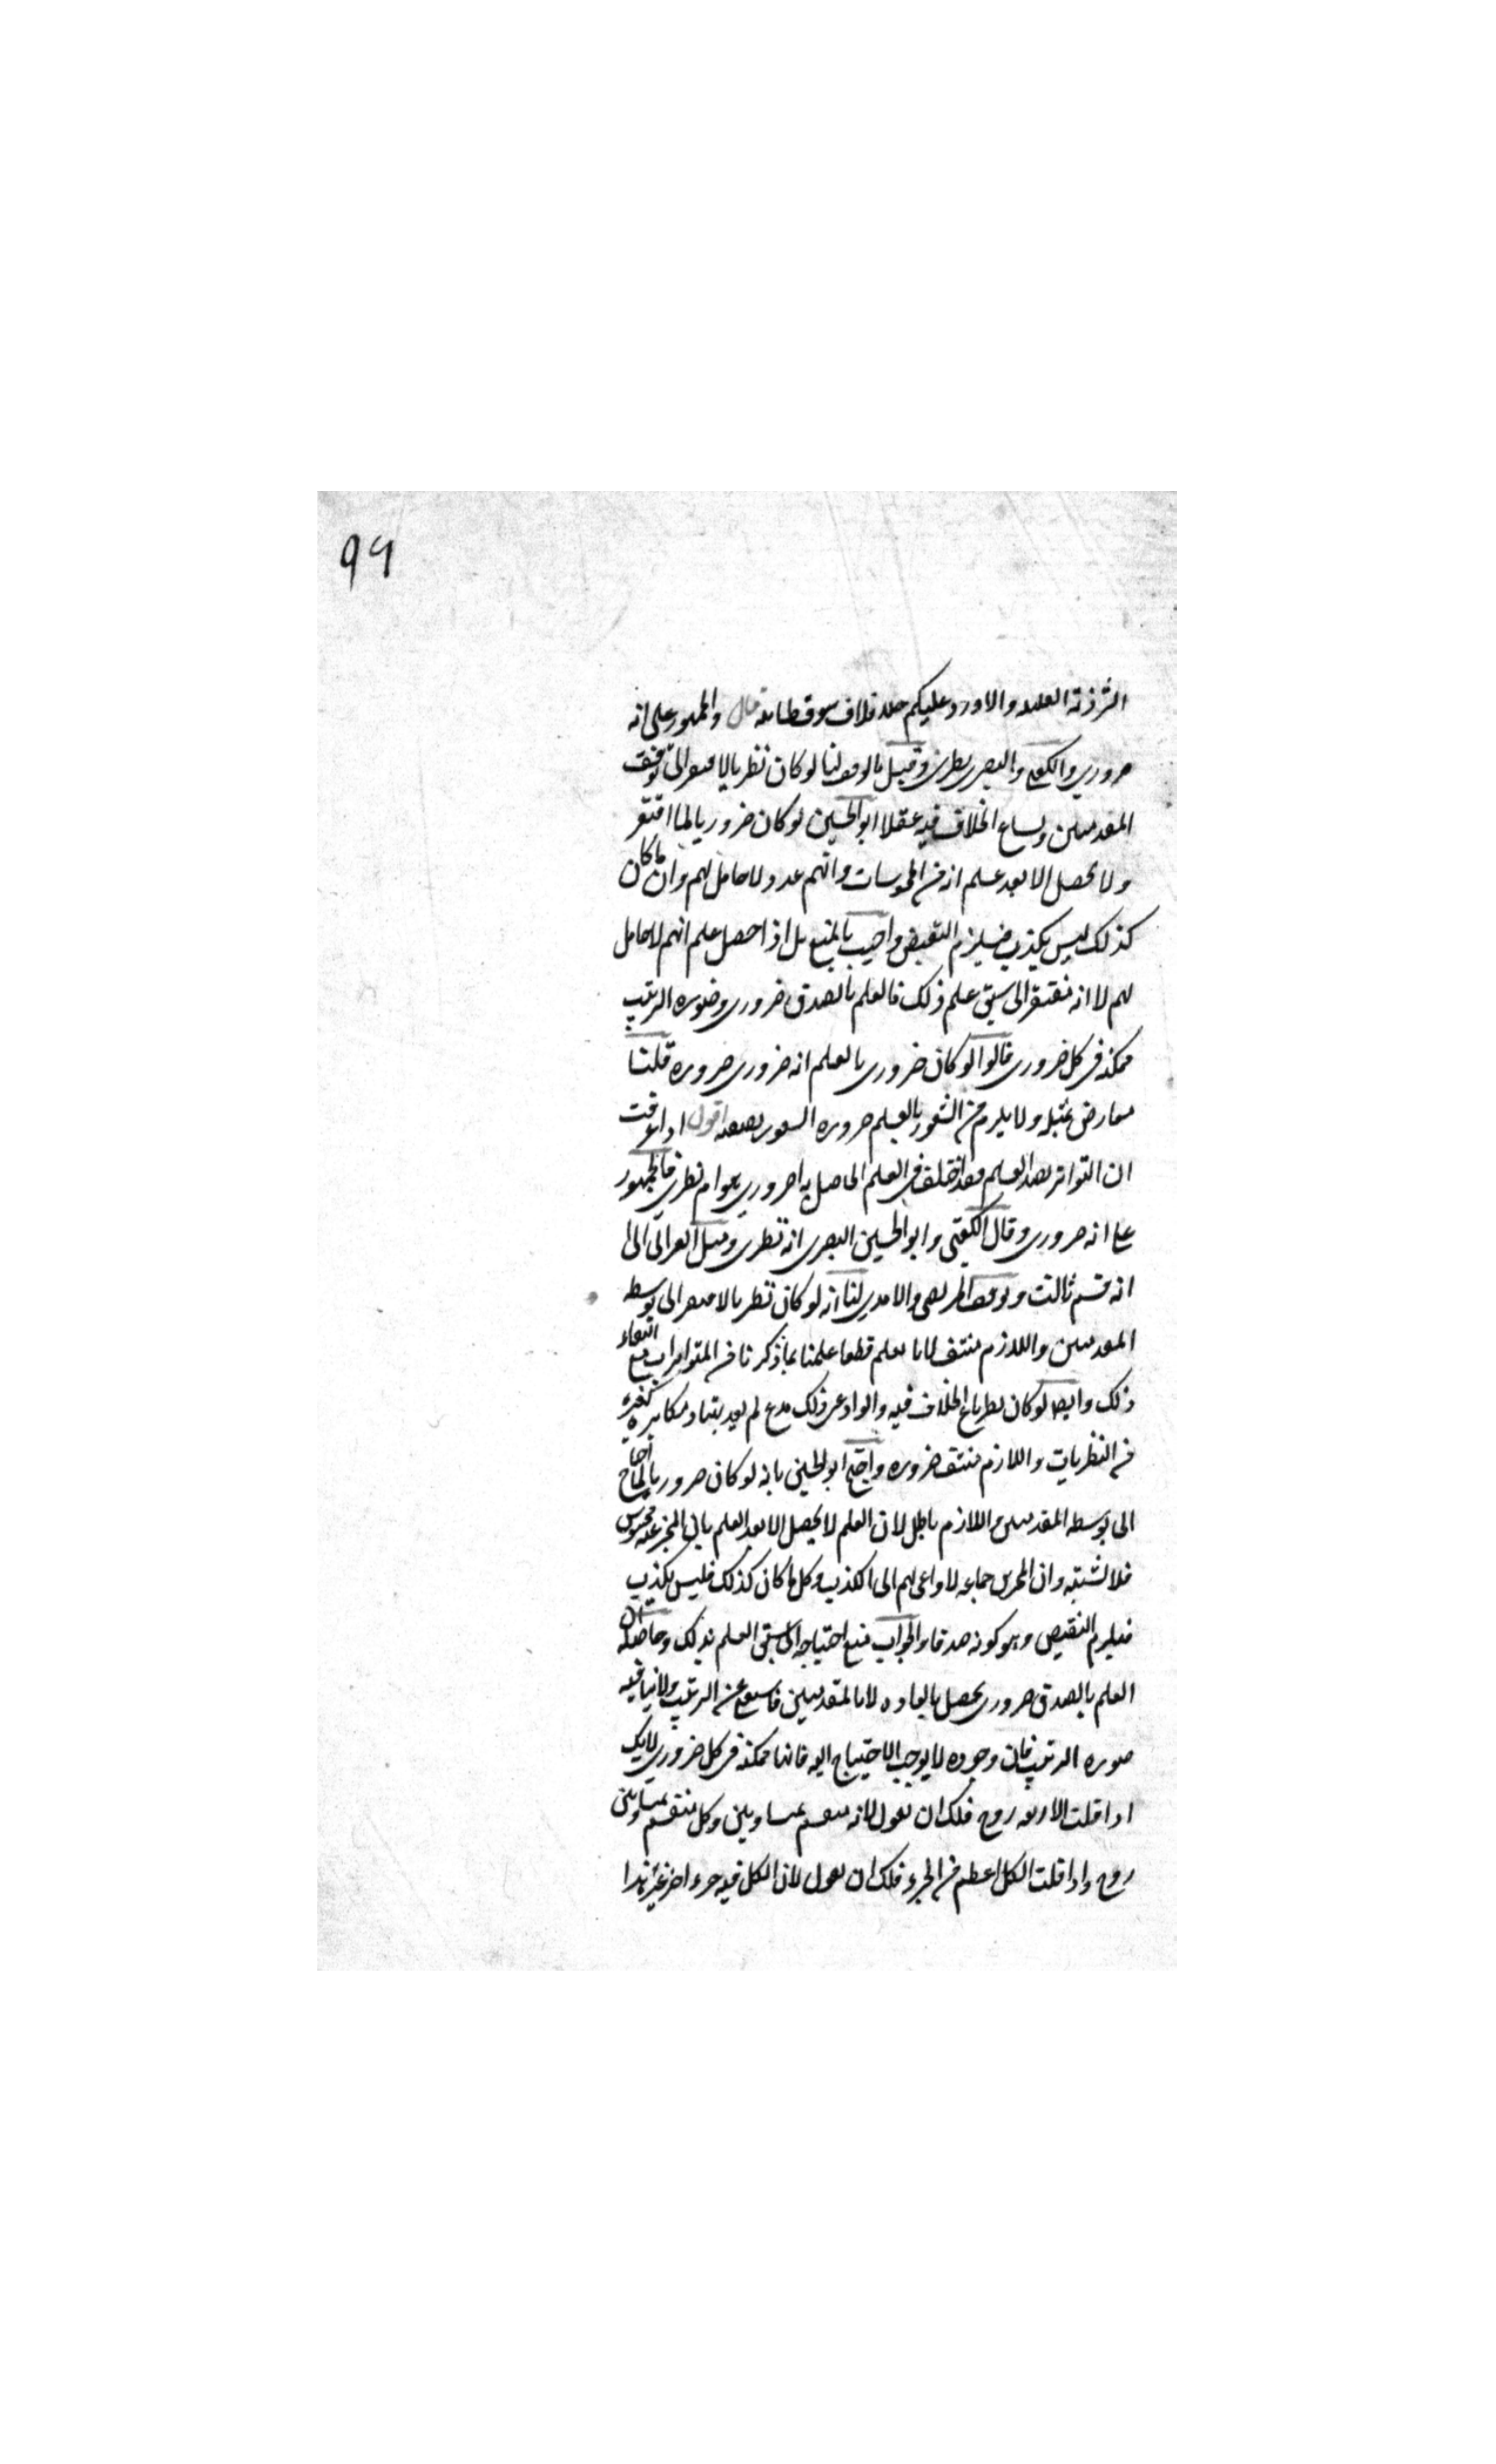 ٩٩
الشرذمة القليلة والا ورد عليكم خلاف سوفسطائية قال والجمهور على انه
ضروري والكعبي والبصري نظري وقيل بالوقف لنا لو كان نظريا لافتقر الى توسط
المقدمتين ولساغ الخلاف فيه عقلا ابو الحسين لو كان ضروريا لما افتقر
ولا يحصل الا بعد علم انه من المحسوسات وانهم عدد لا حامل لهم وان ما كان
كذلك ليس بكذب فيلزم النقيض واجيب بالمنع بل اذا حصل علم انهم لا حامل
لهم لا انه مفتقر الى سبق علم ذلك فالعلم بالصدق ضروري وصورة الترتيب
ممكنة في كل ضروري قالوا لو كان ضروري بالعلم انه ضروري ضرورة قلنا
معارض بمثله ولا يلزم من الشعور بالعلم ضرورة الشعور بصفته اقول اذا عرفت
ان التواتر يفيد العلم فقد اختلف في العلم الحاصل به اضروري هو ام نظري فالجمهور
على انه ضروري وقال الكعبي وابو الحسين البصري انه نظري وميل الغزالي الى
انه قسم ثالث وتوقف المرتضى والامدي لنا انه لو كان نظريا لافتقر الى توسط
المقدمتين واللازم منتف لانا نعلم قطعا علمنا بما ذكرنا من المتواترات مع انتفاء
ذلك وايضا لو كان نظريا لساغ الخلاف فيه ولو ادعى ذلك مدع لم يعد بهتا ومكابرة كغيره
من النظريات واللازم منتف ضرورة واحتج ابو الحسين بانه لو كان ضروريا لما احتاج
الى توسط المقدمتين واللازم باطل لان العلم لا يحصل الا بعد العلم بان المخبر عنه محسوس
فلا يشتبه وان المخبرين جماعة لا داعي لهم الى الكذب وكل ما كان كذلك فليس بكذب
فيلزم النقيض وهو كونه صدقا والجواب منع احتياجه الى سبق العلم بذلك وحاصله ان
العلم بالصدق ضروري يحصل بالعادة لا بالمقدمتين فاستغنى عن الترتيب ولا ينافيه
صورة الترتيب فان وجوده لا يوجب الاحتياج اليه فانها ممكنة في كل ضروري لانك
اذا قلت الاربعة زوج فلك ان تقول لانه منقسم بمتساويين وكل منقسم بمتساويين
زوج واذا قلت الكل اعظم من الجزء فلك ان تقول لان الكل فيه جزء اخر غير هذا